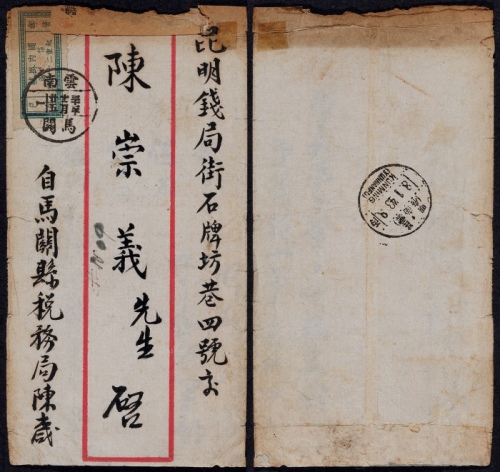 昆明錢局街石牌坊巷四號交
陳崇義先生啓
自馬關縣稅務局陳緘
雲南
馬關
KUNMING